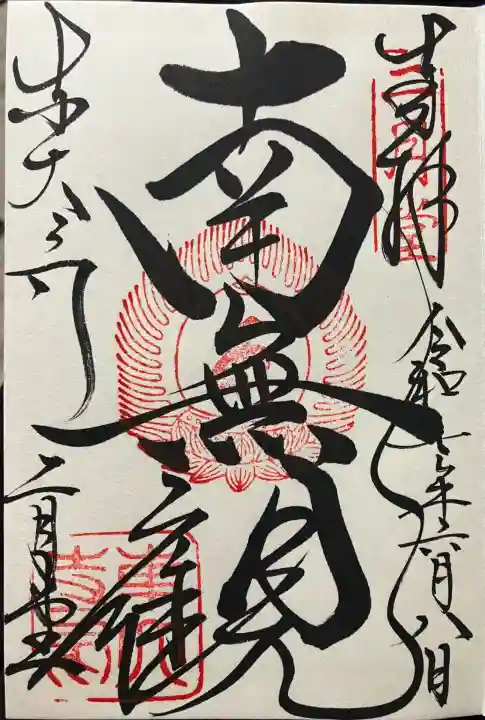 奉拝
二月堂
令和年六月八日
南無観
東大寺
二月堂